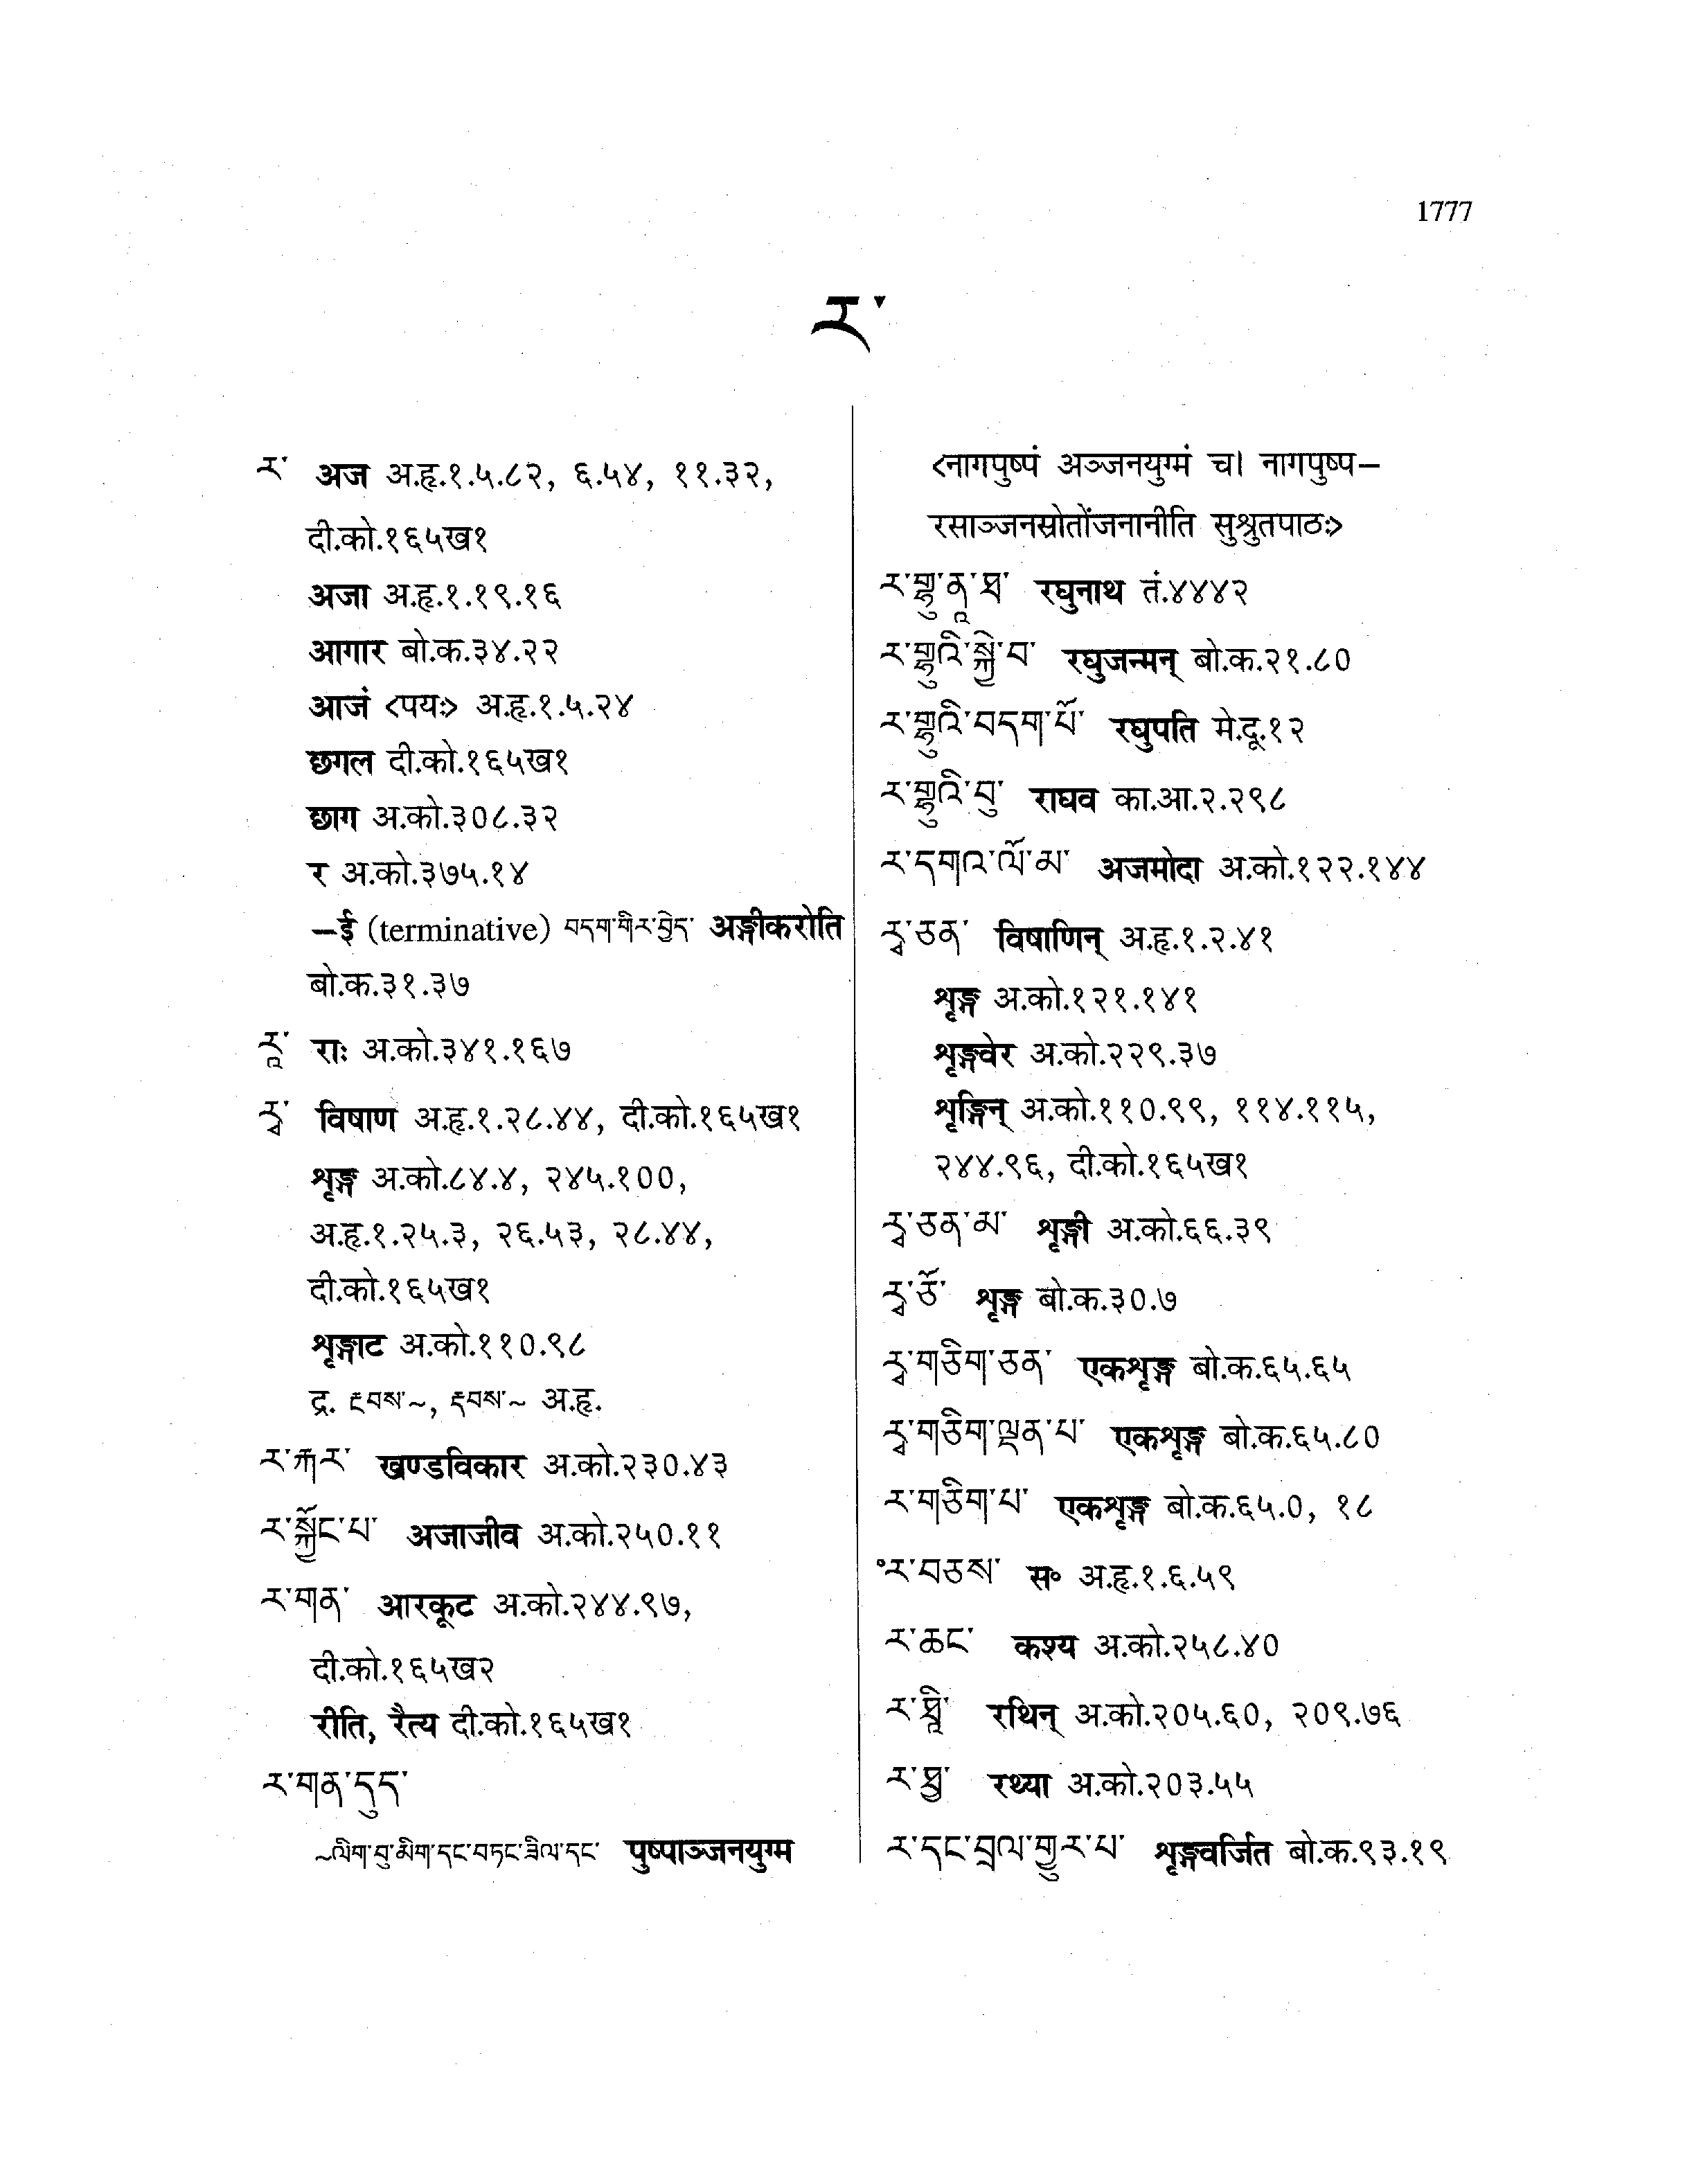 1777
ར་
ར་ अज अ.हृ.१.५.८२, ६.५४, ११.३२,
दी.को.१६५ख१
अजा अ.हृ.१.१९.१६
आगार बो.क.३४.२२
आजं <पयः> अ.हृ.१.५.२४
छगल दी.को.१६५ख१
छाग अ.को.३०८.३२
र अ.को.३७५.१४
–ई (terminative) བདག་གིར་བྱེད་ अङ्गीकरोति
बो.क.३१.३७
རཱ་ राः अ.को.३४१.१६७
རྭ་ विषाण अ.हृ.१.२८.४४, दी.को.१६५ख१
शृङ्ग अ.को.८४.४, २४५.१००,
अ.हृ.१.२५.३, २६.५३, २८.४४,
दी.को.१६५ख१
शृङ्गाट अ.को.११०.९८
द्र. ངབས་~, རྔབས་~ अ.हृ.
ར་ཀར་ खण्डविकार अ.को.२३०.४३
ར་སྐྱོང་པ་ अजाजीव अ.को.२५०.११
ར་གན་ आरकूट अ.को.२४४.९७,
दी.को.१६५ख२
रीति, रैत्य दी.को.१६५ख१
ར་གན་དུད་
~ལིག་བུ་མིག་དང་བཏང་ཟིལ་དང་ पुष्पाञ्जनयुग्म
<नागपुष्पं अञ्जनयुग्मं च। नागपुष्प–
रसाञ्जनस्रोतोंजनानीति सुश्रुतपाठः>
ར་གྷུ་ནཱ་ཐ་ रघुनाथ तं.४४४२
ར་གྷུའི་སྐྱེ་བ་ रघुजन्मन् बो.क.२१.८०
ར་གྷུའི་བདག་པོ་ रघुपति मे.दू.१२
ར་གྷུའི་བུ་ राघव का.आ.२.२९८
ར་དགའ་ལོ་མ་ अजमोदा अ.को.१२२.१४४
རྭ་ཅན་ विषाणिन् अ.हृ.१.२.४१
शृङ्ग अ.को.१२१.१४१
शृङ्गवेर अ.को.२२९.३७
शृङ्गिन् अ.को.११०.९९, ११४.११५,
२४४.९६, दी.को.१६५ख१
རྭ་ཅན་མ་ शृङ्गी अ.को.६६.३९
རྭ་ཅོ་ शृङ्ग बो.क.३०.७
རྭ་གཅིག་ཅན་ एकशृङ्ग बो.क.६५.६५
རྭ་གཅིག་ལྡན་པ་ एकशृङ्ग बो.क.६५.८०
ར་གཅིག་པ་ एकशृङ्ग बो.क.६५.०, १८
°ར་བཅས་ स॰ अ.हृ.१.६.५९
ར་ཆང་ कश्य अ.को.२५८.४०
ར་ཐཱི་ रथिन् अ.को.२०५.६०, २०९.७६
ར་ཐྱ་ रथ्या अ.को.२०३.५५
ར་དང་བྲལ་གྱུར་པ་ शृङ्गवर्जित बो.क.९३.१९